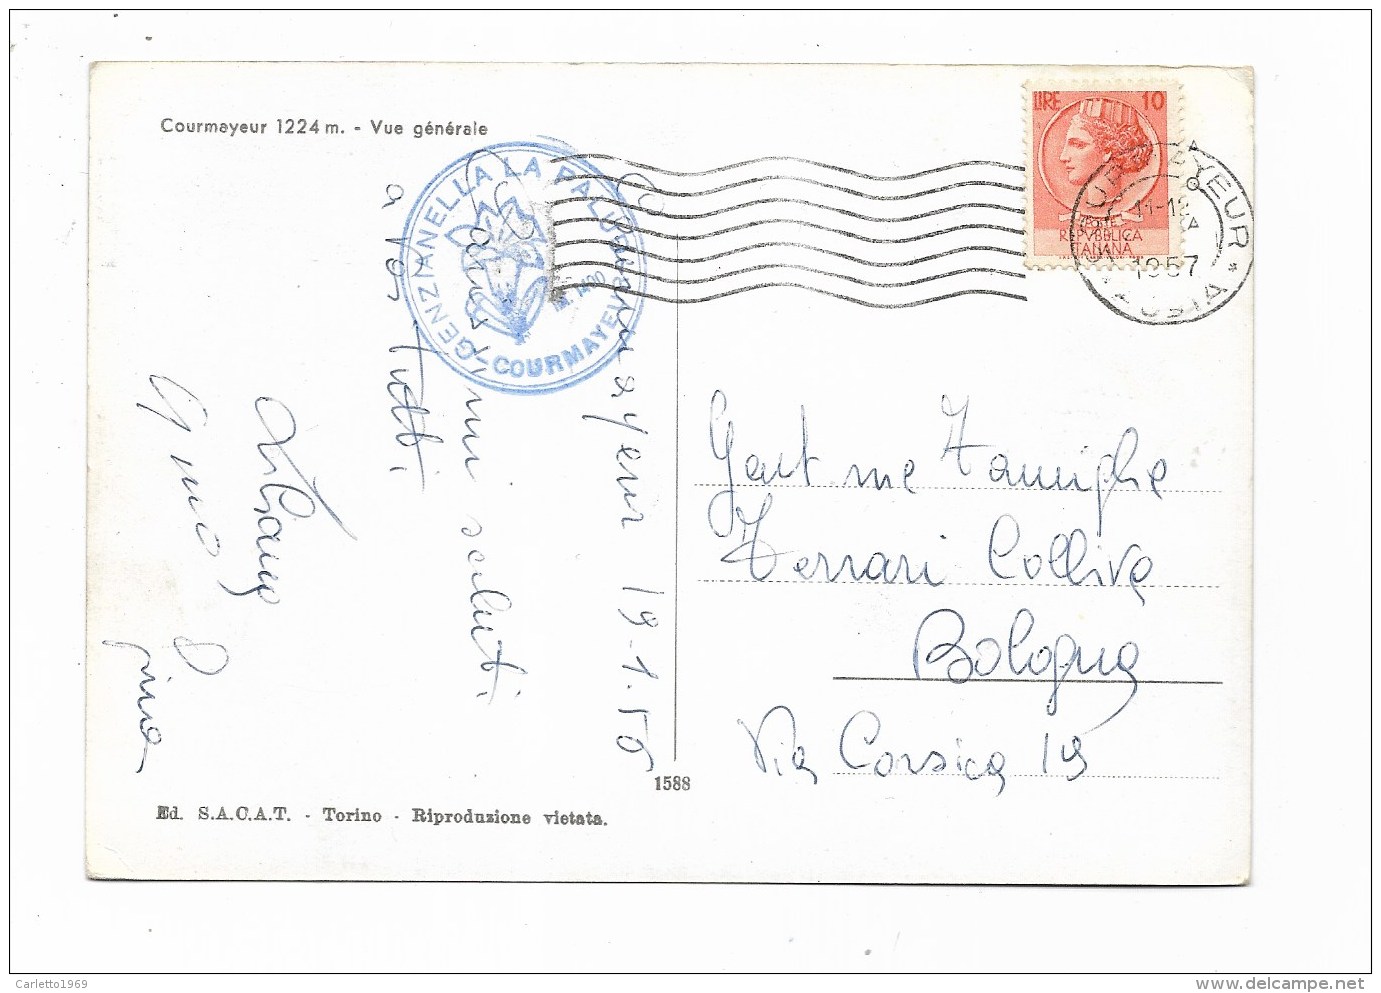 Courmayeur 1224 m. - Vue générale
LIRE 10
REPVBBLICA
ITALIANA
COURMAYEUR * AOSTA
1957
GENZIANELLA LA PALUD
m. 1400
- COURMAYEUR -
Courmayeur 19-1-56
Carissimi saluti
a Voi Tutti
Gino
Gina
Gent me Famiglie
Ferrari Colliva
Bologna
Via Corsica 19
1588
Ed. S.A.C.A.T. - Torino - Riproduzione vietata.
Carletto1969
delcampe.net